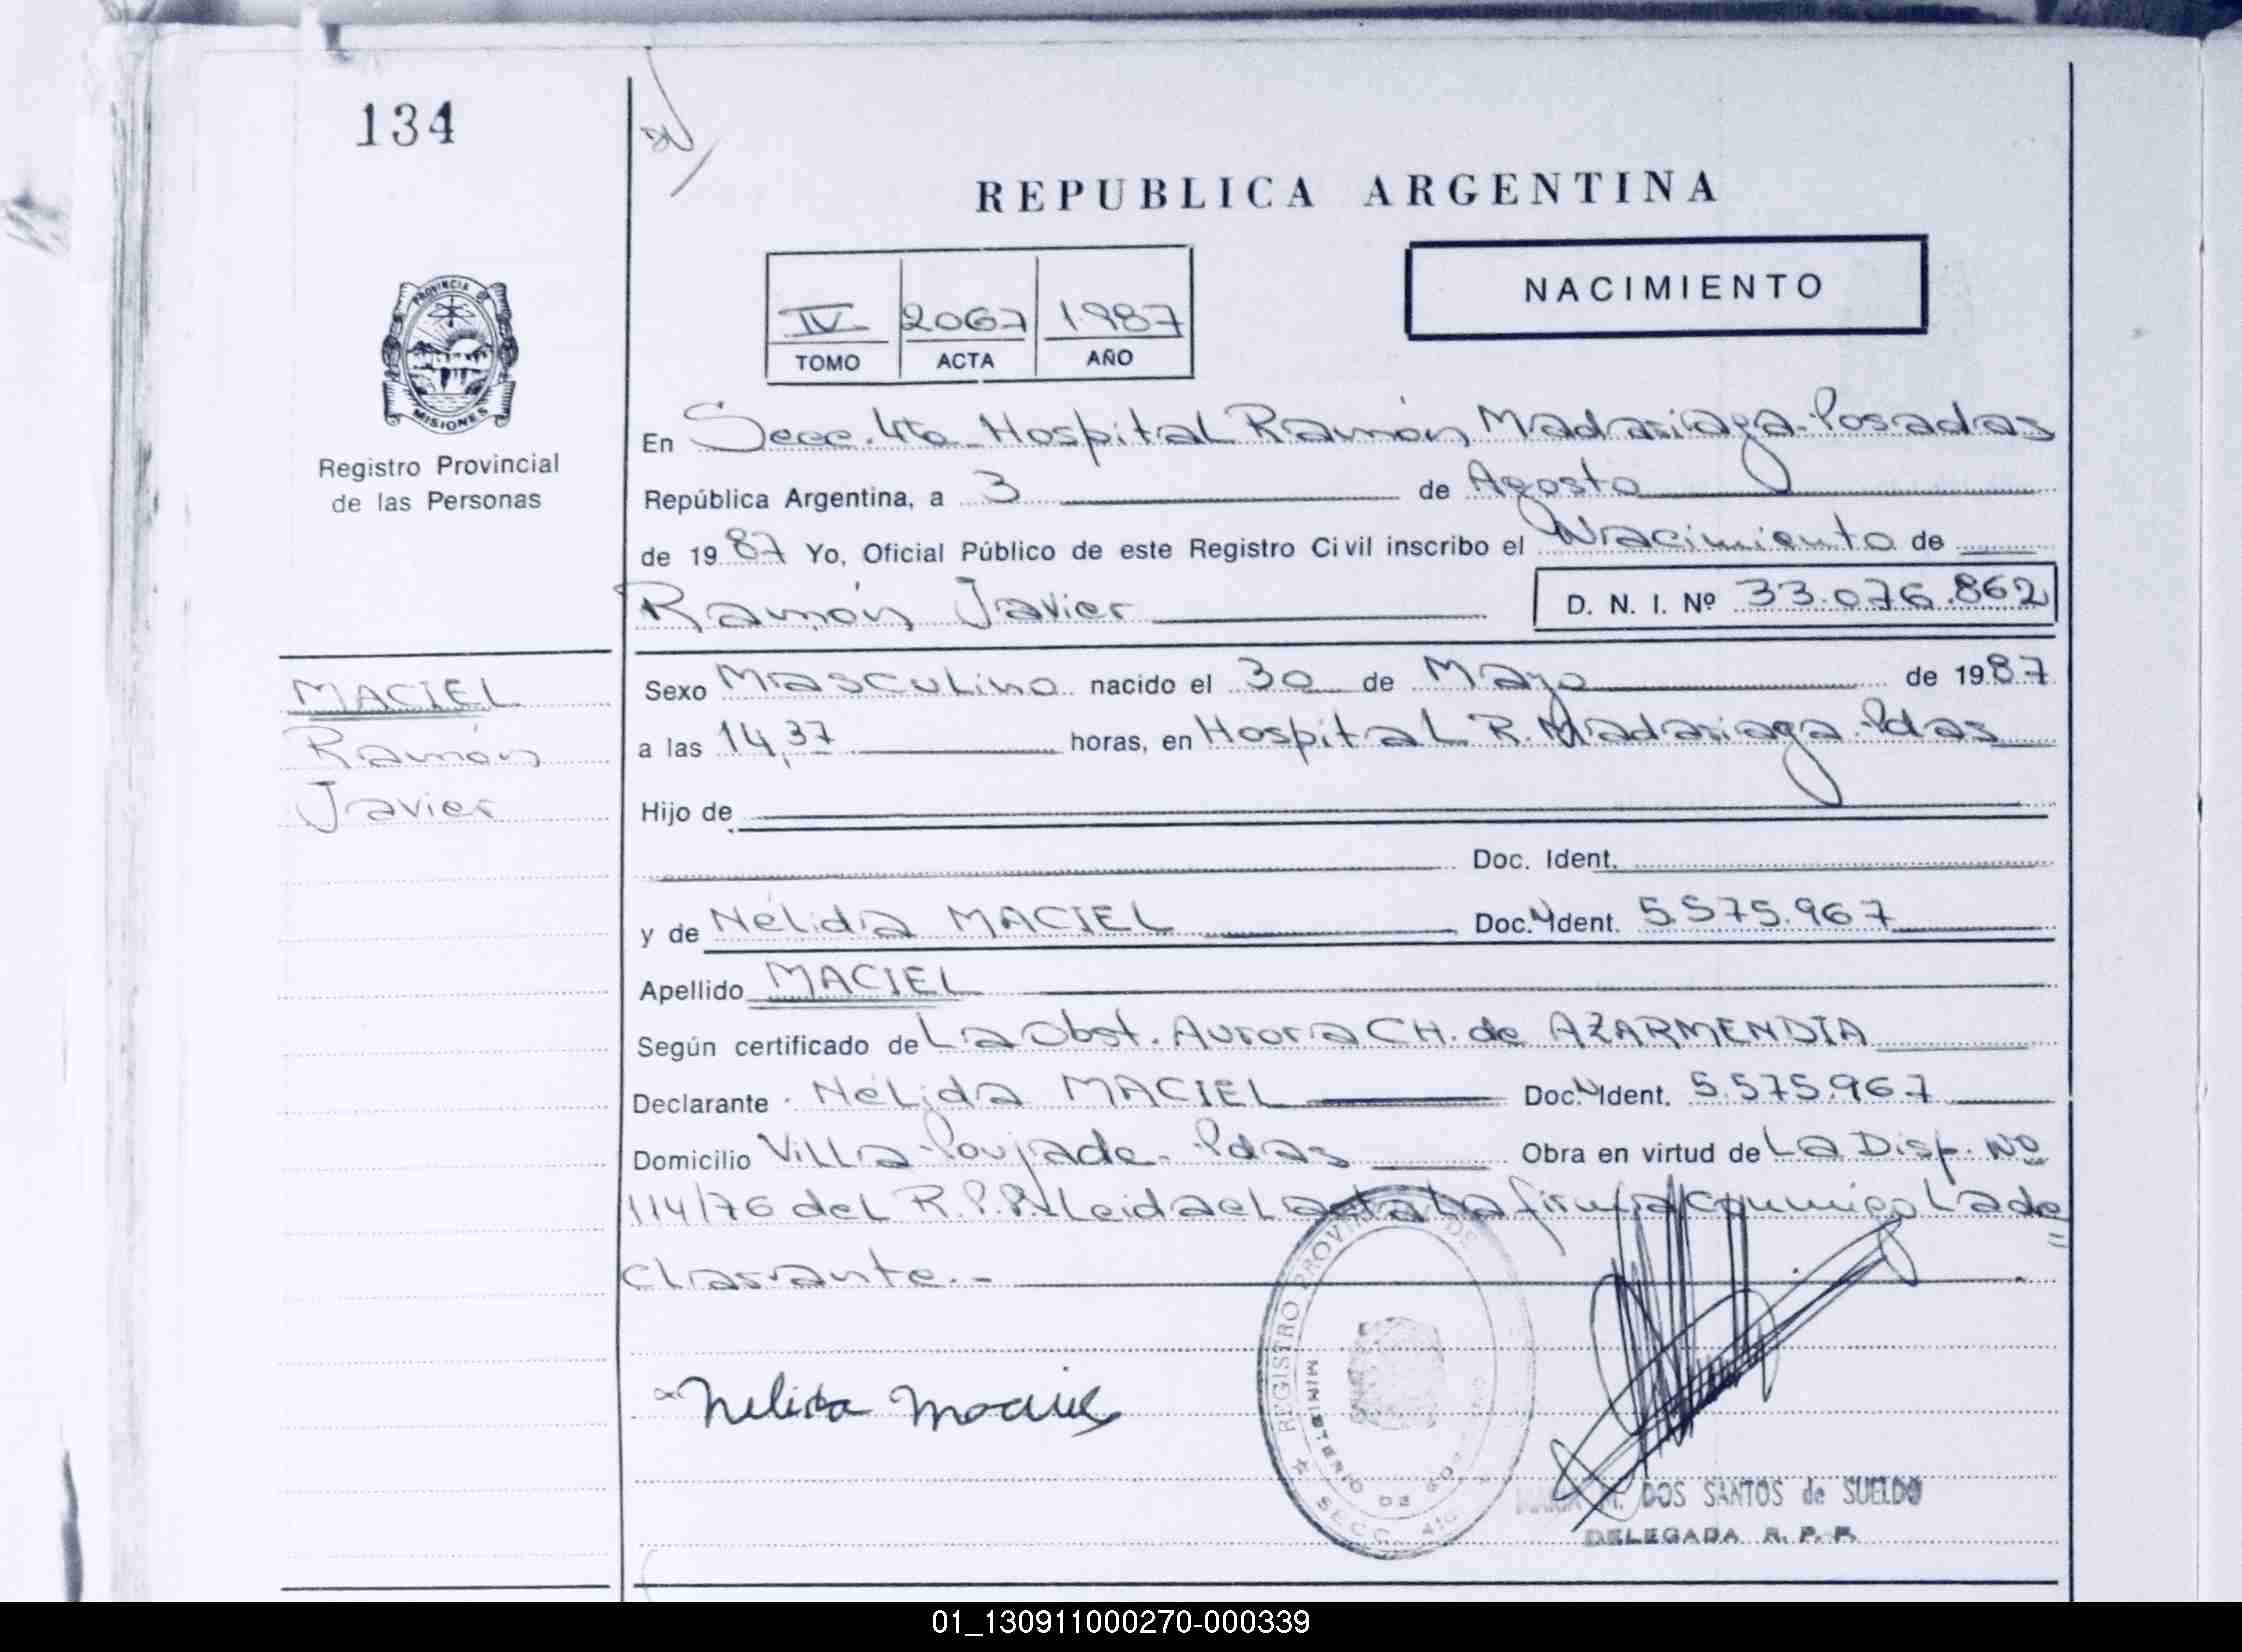 134
REPUBLICA ARGENTINA
NACIMIENTO
IV 2067 1987
TOMO ACTA AÑO
PROVINCIA DE
MISIONES
Registro Provincial
de las Personas
En Secc. 4ta - Hospital Ramón Madariaga - Posadas
República Argentina, a 3 de Agosto
de 1987 Yo, Oficial Público de este Registro Civil inscribo el Nacimiento de
Ramón Javier D. N. I. Nº 33.076.862
MACIEL
Ramón
Javier
Sexo Masculino nacido el 30 de Mayo de 1987
a las 14,37 horas, en Hospital R. Madariaga - Pdas
Hijo de
Doc. Ident.
y de Nélida MACIEL Doc. Ident. 5.575.967
Apellido MACIEL
Según certificado de La Obst. Aurora CH. de AZARMENDIA
Declarante Nélida MACIEL Doc. Ident. 5.575.967
Domicilio Villa Poujade - Pdas Obra en virtud de La Disp. Nº
114/76 del R.P.P. Leida el acta la firma conmigo la de
clarante. -
Nelida Maciel
REGISTRO PROVINCIAL DE
MINISTERIO DE GOB
SECC. 4ta
MARIA M. DOS SANTOS de SUELDO
DELEGADA R. P. P.
01_130911000270-000339